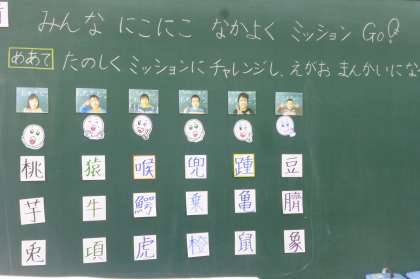 みんな にこにこ なかよく ミッション GO!
めあて たのしく ミッションにチャレンジし、えがお まんかいにな
桃 猿 喉 兜 踵 豆
芋 牛 鰐 乗 亀 臍
兎 項 虎 橙 鼠 象